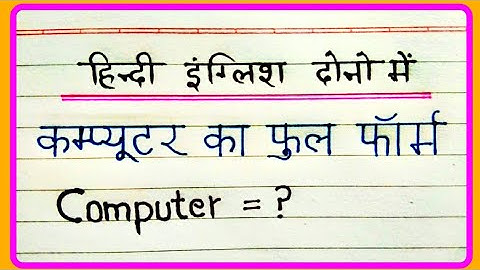 हिन्दी इंग्लिश दोनो में
कम्प्यूटर का फुल फॉर्म
Computer = ?